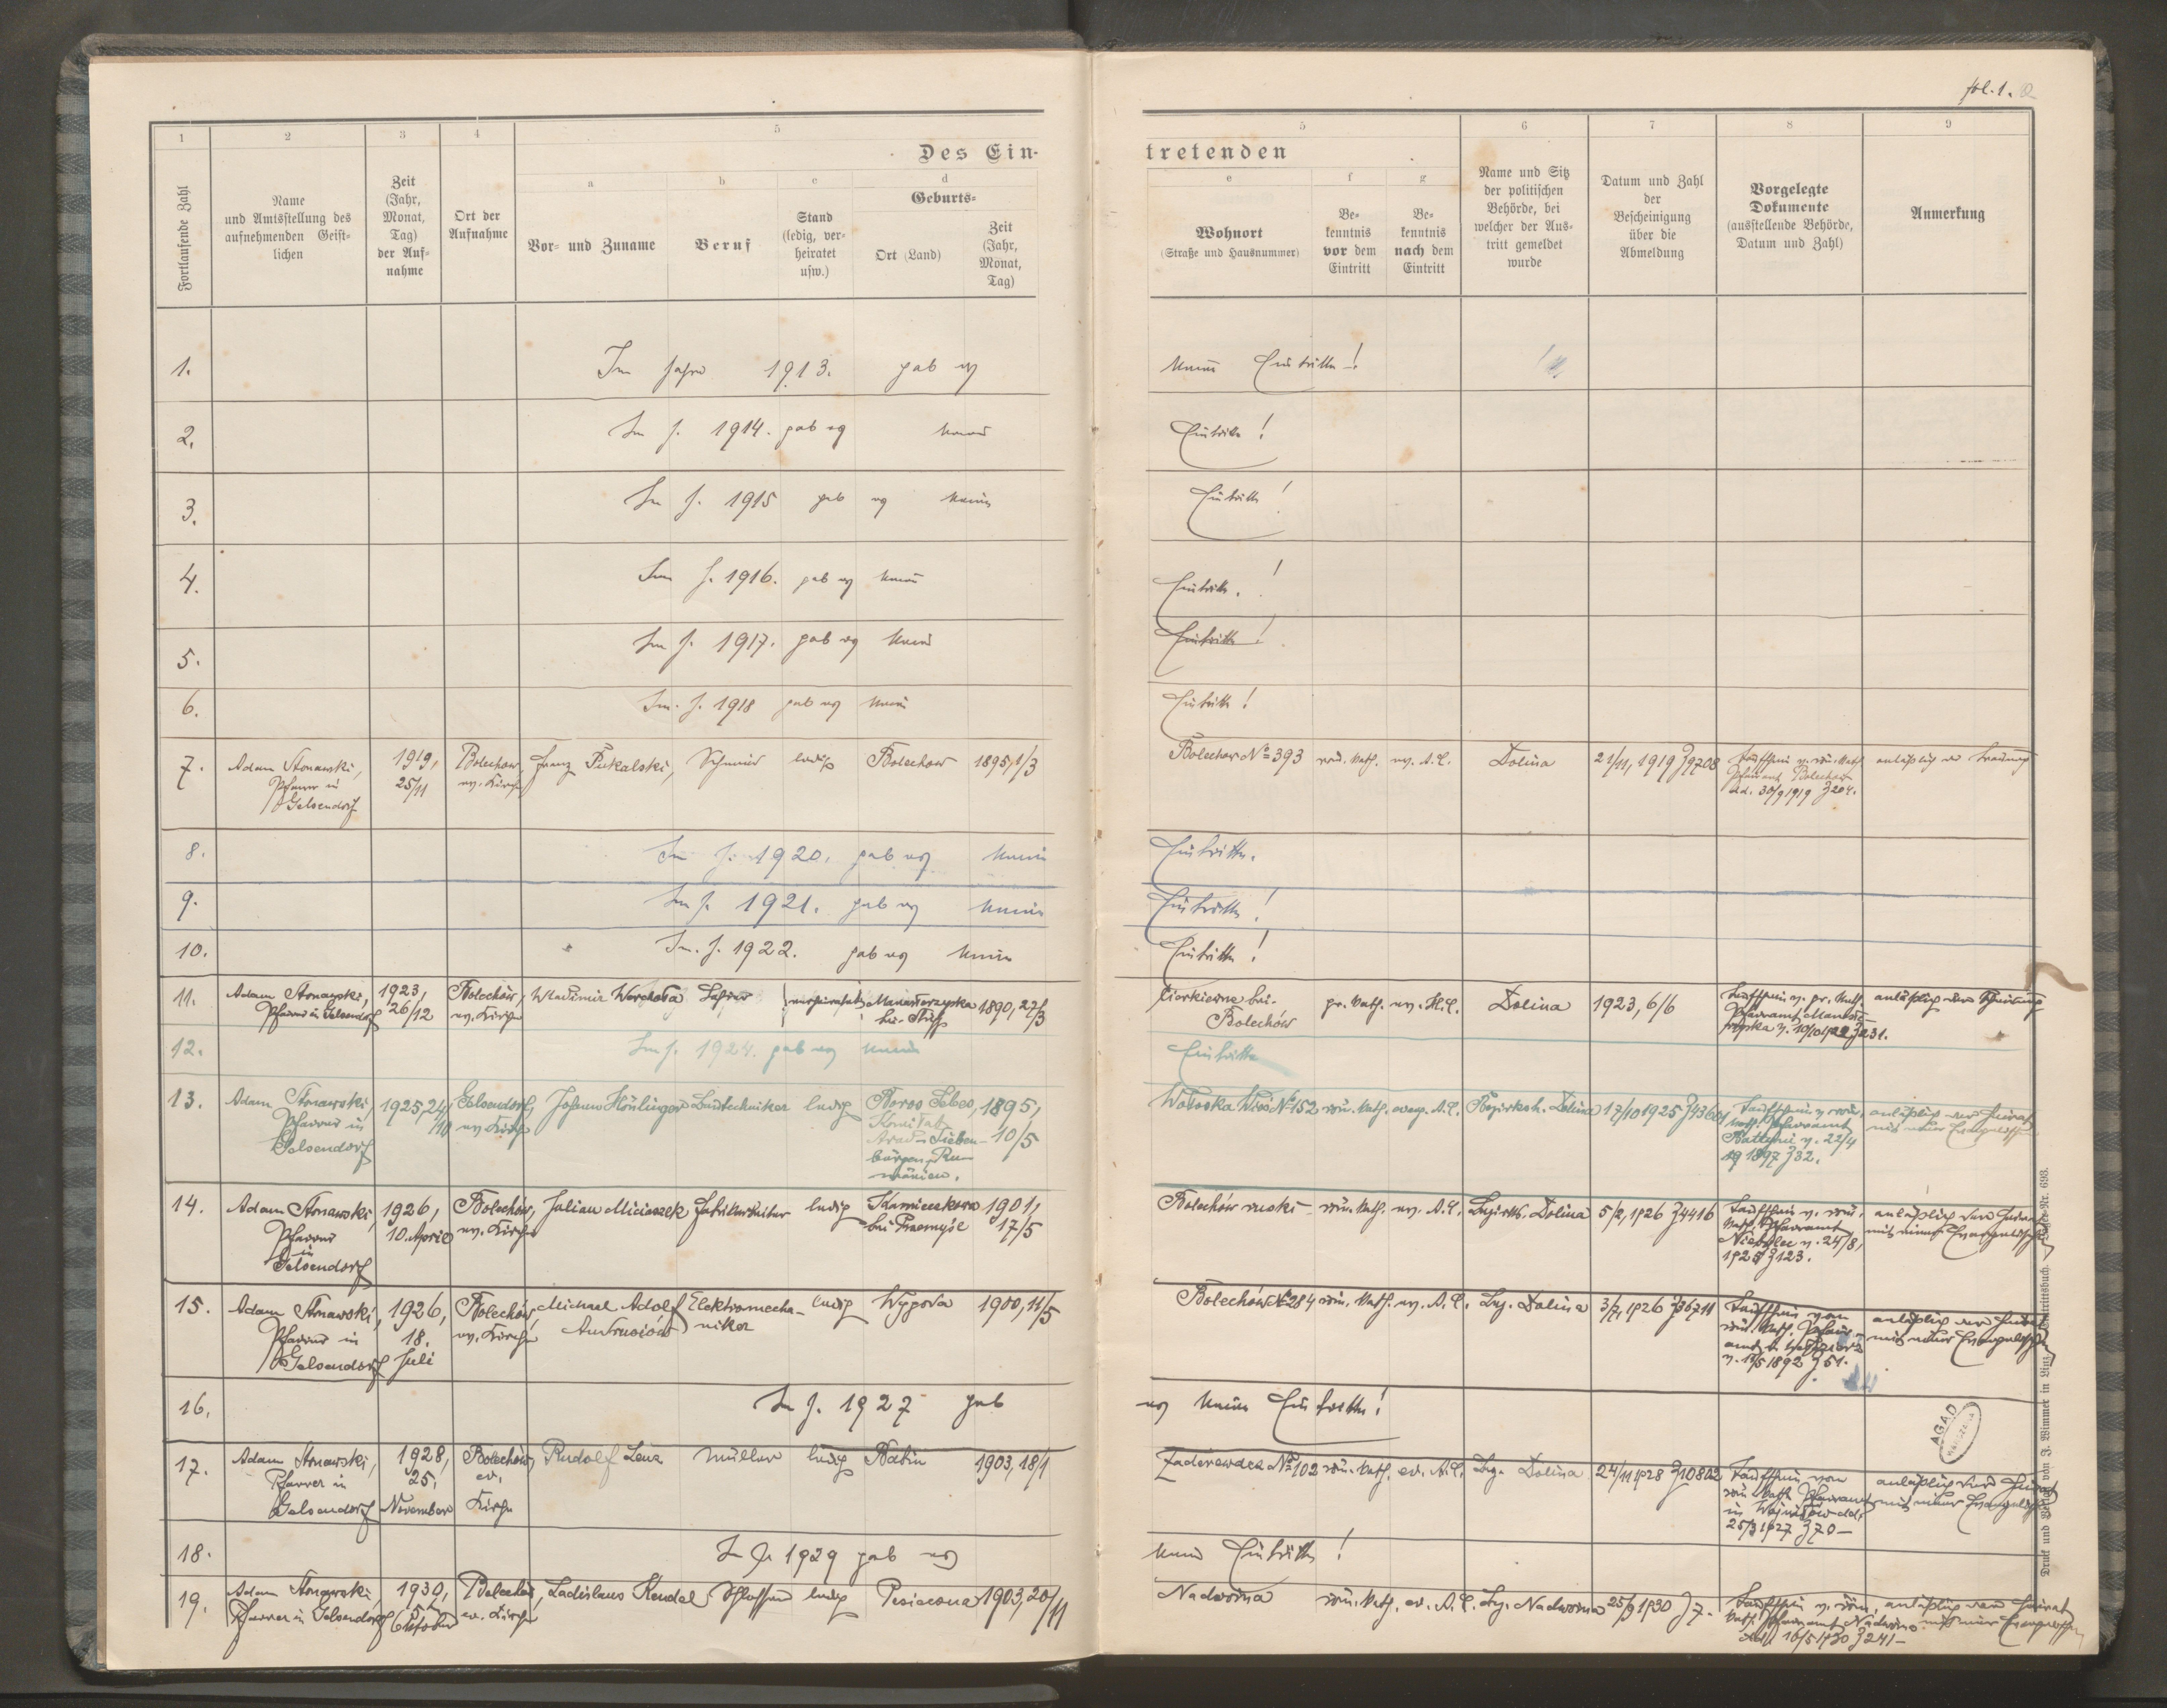 fol. 1.
1 2 3 4 5 5 6 7 8 9
Des Ein- tretenden
Fortlaufende Zahl
Name und Amtsstellung des aufnehmenden Geist- lichen
Zeit (Jahr, Monat, Tag) der Auf- nahme
Ort der Aufnahme
a Vor- und Zuname
b Beruf
c Stand (ledig, ver- heiratet usw.)
d Geburts-
Ort (Land)
Zeit (Jahr, Monat, Tag)
e Wohnort (Straße und Hausnummer)
f Be- kenntnis vor dem Eintritt
g Be- kenntnis nach dem Eintritt
Name und Sitz der politischen Behörde, bei welcher der Aus- tritt gemeldet wurde
Datum und Zahl der Bescheinigung über die Abmeldung
Vorgelegte Dokumente (ausstellende Behörde, Datum und Zahl)
Anmerkung
1. Im Jahre 1913. gab es keine Eintritte!
2. Im J. 1914. gab es keine Eintritte!
3. Im J. 1915 gab es keine Eintritte!
4. Im J. 1916. gab es keine Eintritte!
5. Im J. 1917. gab es keine Eintritte!
6. Im J. 1918 gab es keine Eintritte!
7. Adam Stonawski, Pfarrer in Gelsendorf 1919, 25/11 Bolechow, ev. Kirche Franz Pukalski, ledig Bolechow 1895, 1/3 Bolechow No 393 röm. kath. ev. A. C. Dolina 21/11, 1919 Z 9708 Taufschein v. röm. kath. Pfarramt Bolechow dd. 30/9 1919 Z 204. anläßlich der Trauung
8. Im J. 1920. gab es keine Eintritte.
9. Im J. 1921. gab es keine Eintritte!
10. Im J. 1922. gab es keine Eintritte!
11. Adam Stonawski, Pfarrer in Gelsendorf 1923, 26/12 Bolechów, ev. Kirche Wladimir Lehrer verheiratet 1890, 27/3 bei Bolechów gr. kath. ev. H. C. Dolina 1923, 6/6 Taufschein v. gr. kath. Pfarramt Z 231. anläßlich der
12. Im J. 1924. gab es keine Eintritte
13. Adam Stonawski, Pfarrer in Gelsendorf 1925, 24/10 Gelsendorf, ev. Kirche Johann Bautechniker ledig Boros Sebes, Komitat Arad - Sieben- bürgen, Ru- mänien. 1895, 10/5 Wołoska Wieś No 152 röm. kath. evang. A. C. Bezirksh. Dolina 17/10 1925 Taufschein v. röm. kath. Pfarramt v. 22/4 1897 Z 32. anläßlich der Heirat mit einer Evangelischen
14. Adam Stonawski, Pfarrer in Gelsendorf 1926, 10. April Bolechów, ev. Kirche Julian Miciaszek Fabriksarbeiter ledig bei Przemyśl 1901, 17/5 Bolechów ruski röm. kath. ev. A. C. Bezirksh. Dolina 5/2, 1926 Z 4416 Taufschein v. röm. kath. Pfarramt v. 24/8, Z 123. anläßlich der Heirat mit einer Evangelischen
15. Adam Stonawski, Pfarrer in Gelsendorf 1926, 18. Juli Bolechów, ev. Kirche Michael Adolf Elektromecha- niker ledig Wygoda 1900, 11/5 Bolechów No 284 röm. kath. ev. A. C. Bez. Dolina 3/7, 1926 Z 36711 Taufschein vom röm. kath. Pfarr- amt v. Z 51. anläßlich der Heirat mit einer Evangelischen
16. Im J. 1927 gab es keine Eintritte!
17. Adam Stonawski, Pfarrer in Gelsendorf 1928, 25. November Bolechów, ev. Kirche Rudolf Lenz Müller ledig 1903, 18/1 Zaderewacz No 102 röm. kath. ev. A. C. Bez. Dolina 24/11 1928 Z 10802 Taufschein vom röm. kath. Pfarramt in dd. 25/3 1927 Z 70 — anläßlich der Heirat mit einer Evangelischen
18. Im J. 1929 gab es keine Eintritte!
19. Adam Stonawski, Pfarrer in Gelsendorf 1930, Oktober Bolechów, ev. Kirche Ladislaus Kendel Schlosser ledig 1903, 20/11 Nadworna röm. kath. ev. A. C. Bez. Nadworna 25/9 1930 Z 7. Taufschein v. röm. kath. Pfarramt Nadworna 16/5 1930 Z 241 — anläßlich der Heirat mit einer Evangelischen
AGAD WARSZAWA
Druck und Verlag von J. Wimmer in Linz. Eintrittsbuch. Nr. 698.